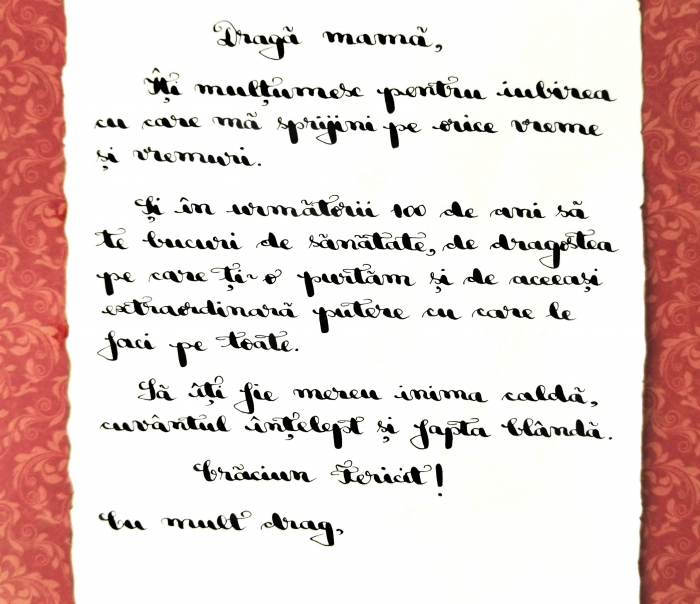 Dragă mamă,
Îți mulțumesc pentru iubirea
cu care mă sprijini pe orice vreme
și vremuri.
Și în următorii 100 de ani să
te bucuri de sănătate, de dragostea
pe care ți-o purtăm și de aceeași
extraordinară putere cu care le
faci pe toate.
Să îți fie mereu inima caldă,
cuvântul înțelept și fapta blândă.
Crăciun Fericit!
Cu mult drag,